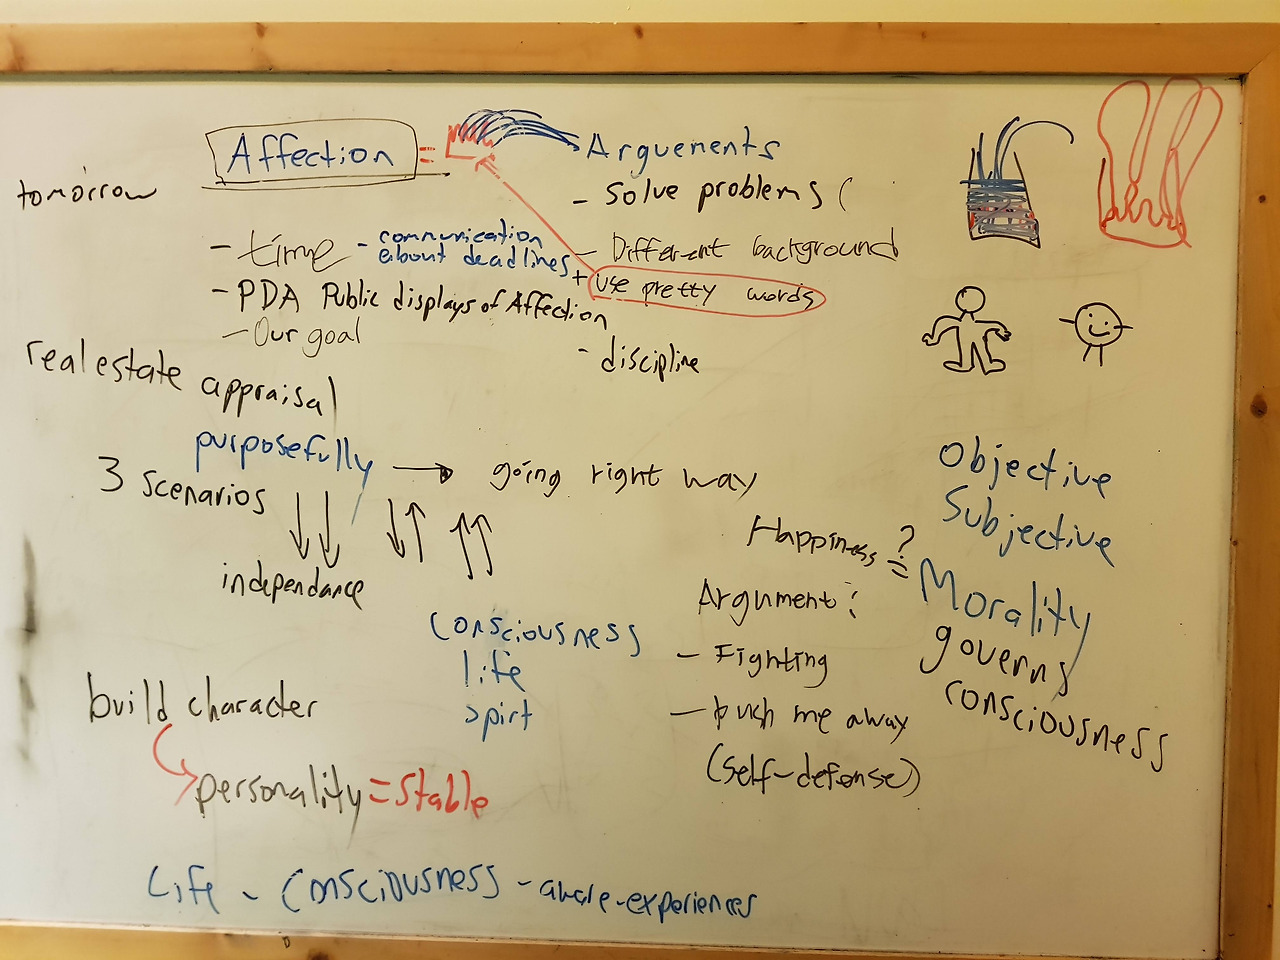 Affection =
Arguements
- Solve problems (
tomorrow
- time - communication
about deadlines
- Different background
+ use pretty words
- PDA Public displays of Affection
- Our goal
- discipline
real estate appraisal
purposefully → going right way
3 scenarios
independance
Objective
Subjective
Happiness =?
Morality
governs
consciousness
Argument:
- Fighting
- push me away
(self-defense)
Consciousness
life
spirt
build character
personality = Stable
Life - Consciousness - aware-experiences